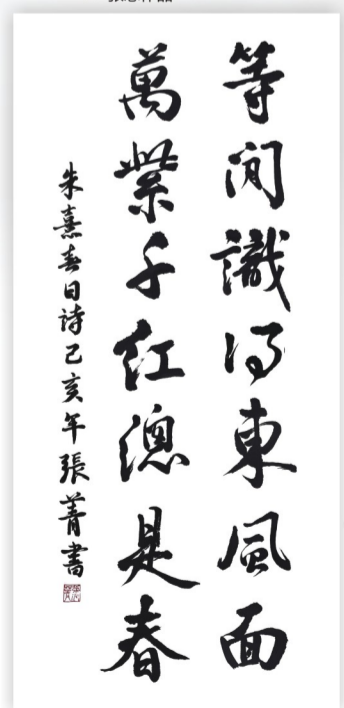 等閒識得東風面
萬紫千紅總是春
朱熹春日詩己亥年張菁書